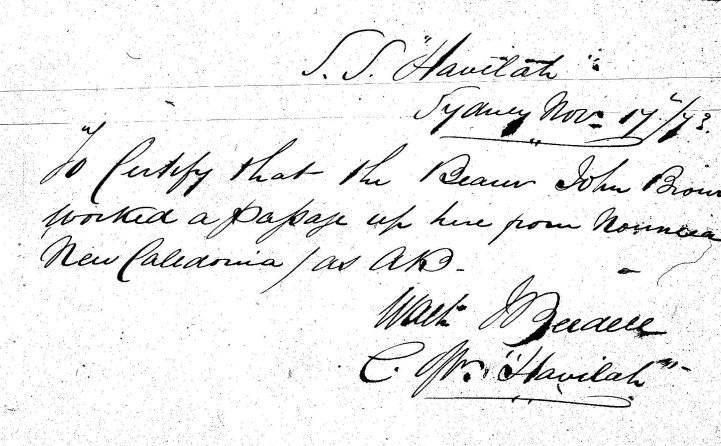 S.S. "Havilah"
Sydney Nov. 17"/73.
To Certify that the Bearer John Brown
worked a passage up here from Noumea
New Caledonia / as AB.
Walt J
C. Offr. "Havilah"